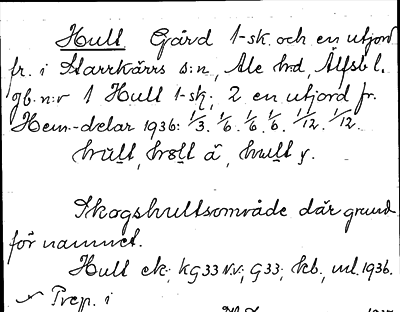 Hult Gård 1-sk. och en utjord
fr. i Starrkärrs s:n, Ale h:d, Älfsb l.
gb. n:r 1 Hult 1-sk; 2 en utjord fr.
Hem.-delar 1936: 1/3. 1/6. 1/6. 1/6. 1/12. 1/12.
hult y.
Skogshultsområde där grund
för namnet.
Hult ek; KG33 N.V; G33; kb, ml. 1936.
Prep. i